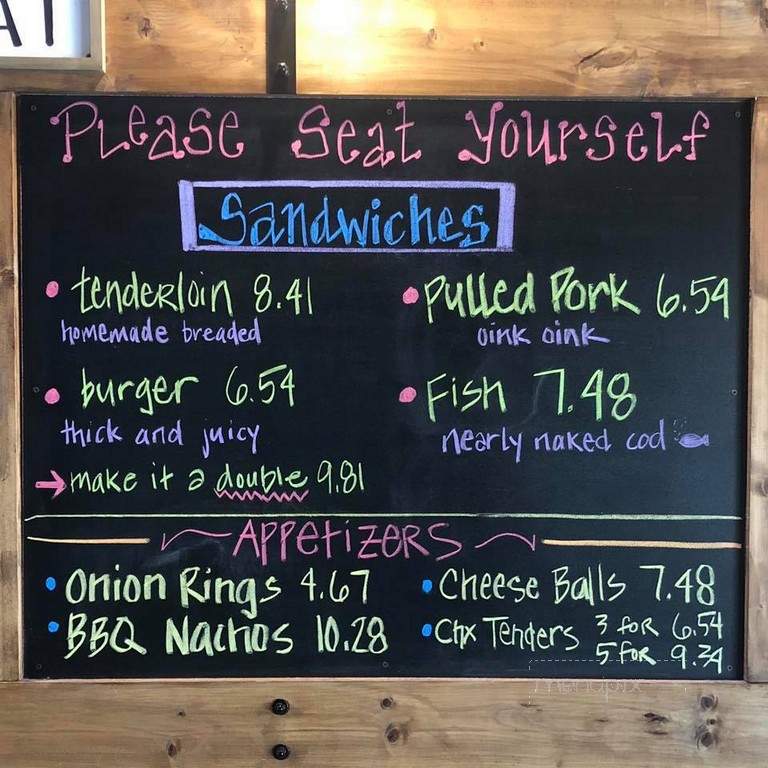 AT
Please Seat Yourself
Sandwiches
• tenderloin 8.41
homemade breaded
• burger 6.54
thick and juicy
→ make it a double 9.81
• Pulled Pork 6.54
oink oink
• Fish 7.48
nearly naked cod
Appetizers
• Onion Rings 4.67
• BBQ Nachos 10.28
• Cheese Balls 7.48
• Chx Tenders 3 for 6.54
5 for 9.34